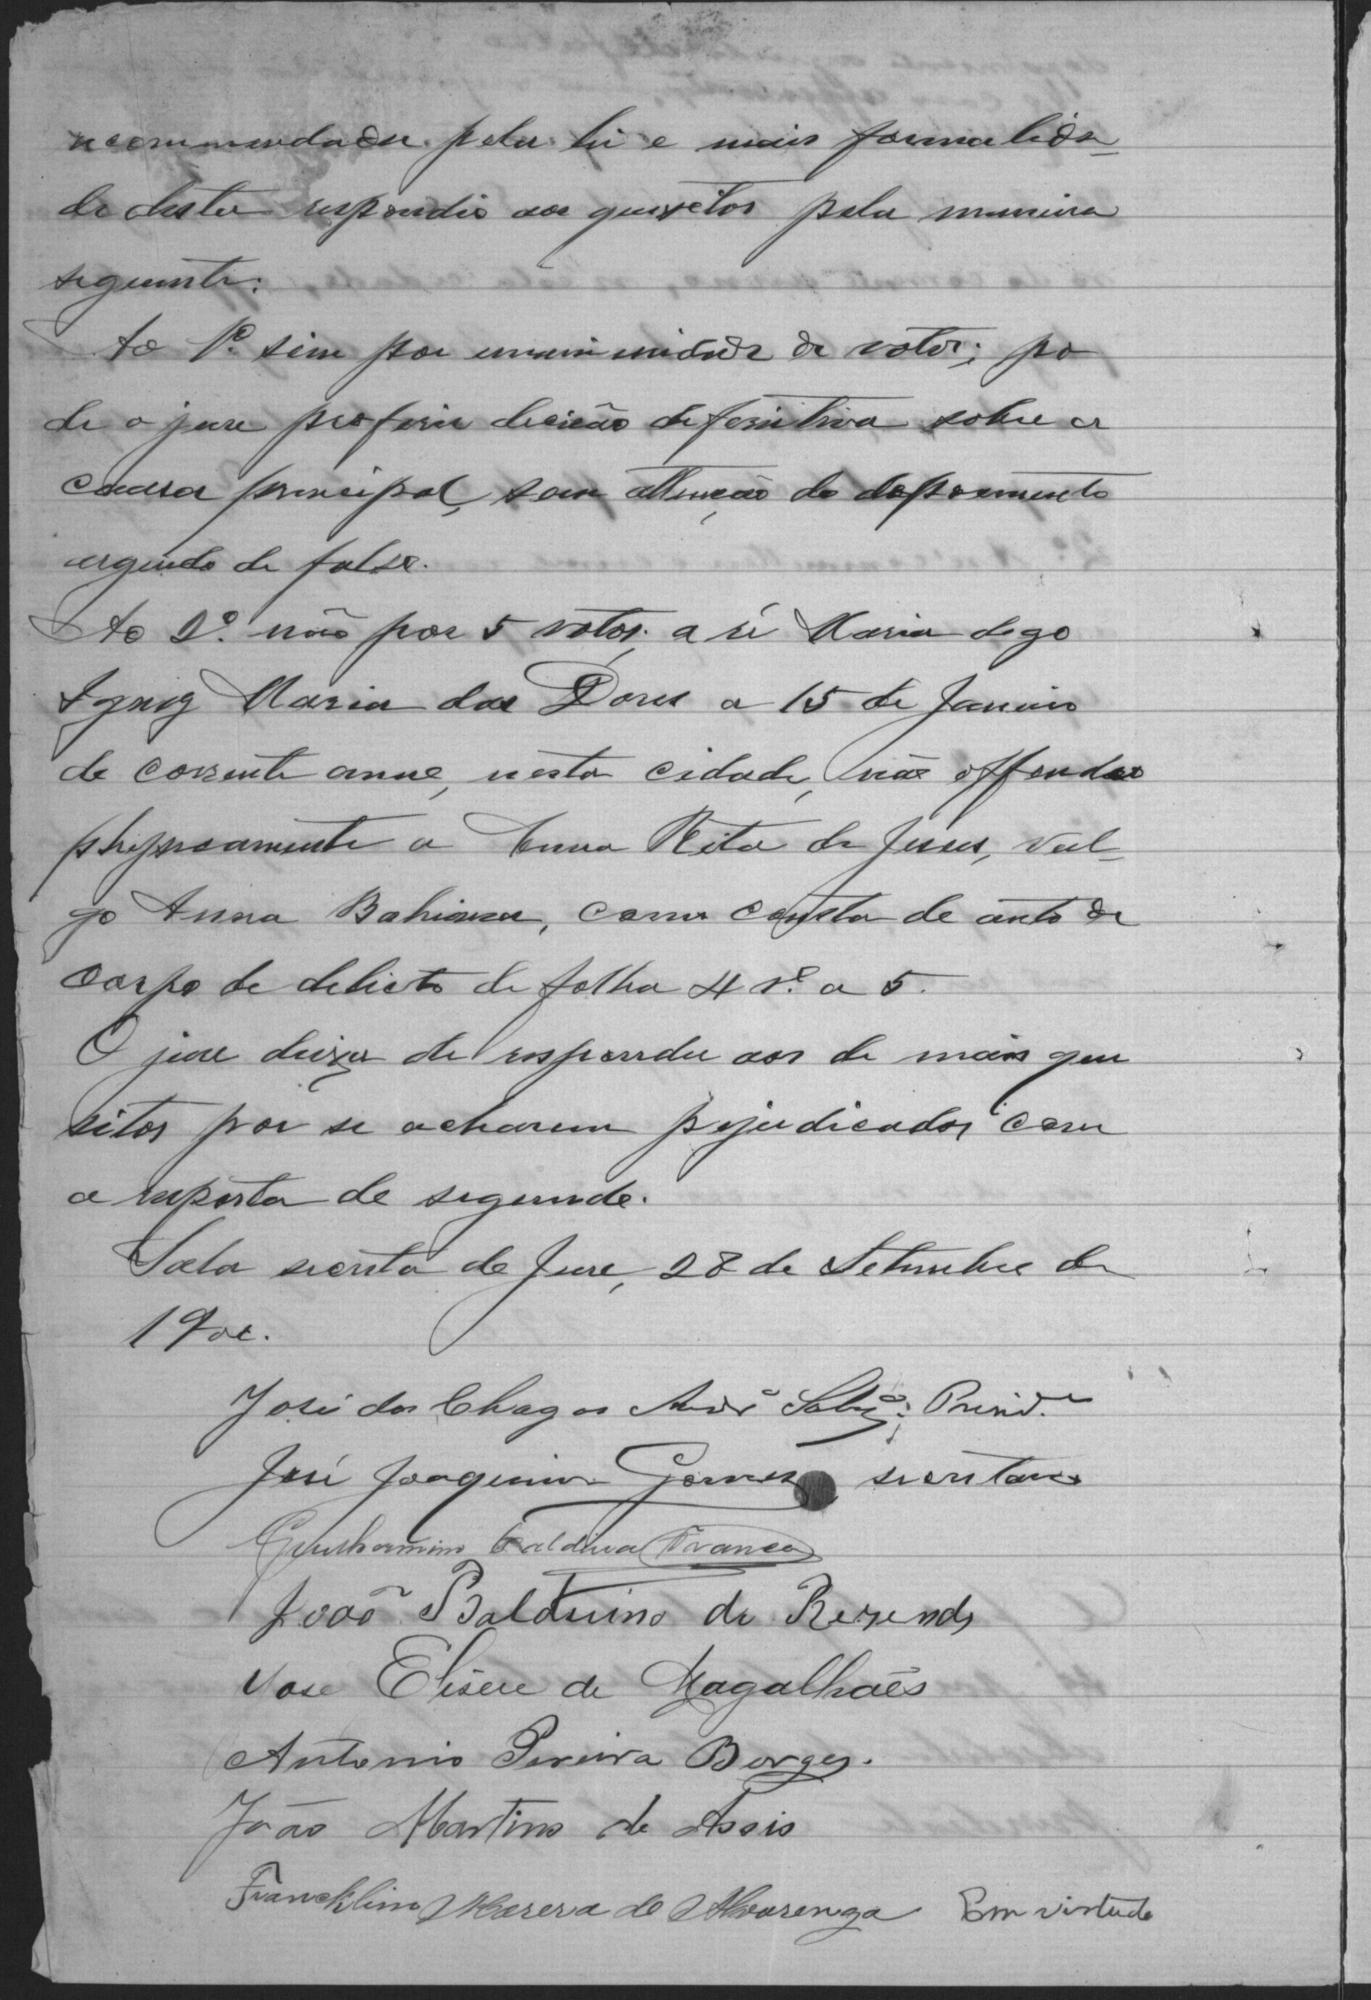 recommendadas pela lei e mais formalida-
de desta respondio aos quezitos pela maneira
seguinte:
Ao 1º sim por unanimidade de votos; po
de o jure proferir decisão defenitiva sobre a
causa principal, sem attenção do depoemento
arguido de falso.
Ao 2º não por 5 votos; a ré Maria digo
Ignez Maria das Dores a 15 de Janeiro
do corrente anno, nesta cidade, não offendeo
phizicamente a Anna Rita de Jesus, vul-
go Anna Bahiana, como consta do auto de
corpo de delicto de folha 4 vº a 5.
O jure deixa de responder aos de mais que
sitos por se acharem prejudicados com
a resposta do segundo.
Sala secreta do Jure, 28 de Setembro de
1900.
José das Chagas Andrº Sobrº; Presidº
José Joaquim Gomes secretario
Guilhermino Caldeira Franco
João Balduino de Rezende
José Eliseu de Magalhães
Antonio Pereira Borges.
João Martins de Assis
Francklino Moreira de Alvarenga Em virtude